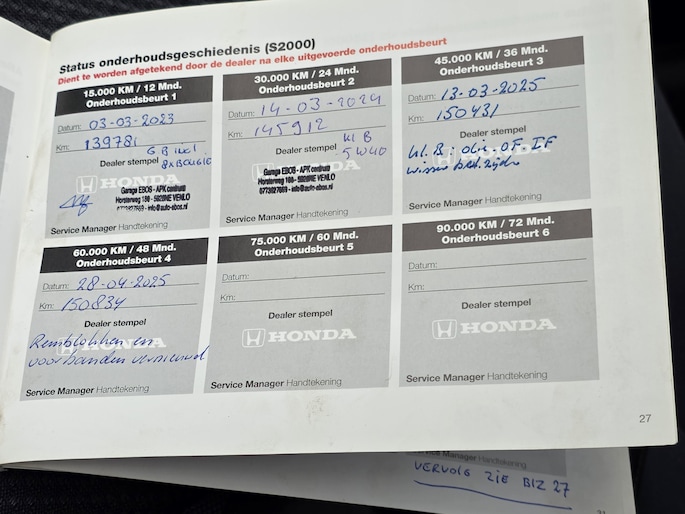 Status onderhoudsgeschiedenis (S2000)
Dient te worden afgetekend door de dealer na elke uitgevoerde onderhoudsbeurt
15.000 KM / 12 Mnd.
Onderhoudsbeurt 1
Datum: 03-03-2023
Km: 139781
G.B incl.
8x BOUGIE
Dealer stempel
HONDA
Garage EBOS - APK centrum
Horsterweg 186 - 5928NE VENLO
0773027669 - info@auto-ebos.nl
Service Manager Handtekening
30.000 KM / 24 Mnd.
Onderhoudsbeurt 2
Datum: 14-03-2024
Km: 145912
kl B
5W40
Dealer stempel
HONDA
Garage EBOS - APK centrum
Horsterweg 186 - 5928NE VENLO
0773027669 - info@auto-ebos.nl
Service Manager Handtekening
45.000 KM / 36 Mnd.
Onderhoudsbeurt 3
Datum: 13-03-2025
Km: 150431
Dealer stempel
kl. B, olie OF IF
HONDA
wisser
Service Manager Handtekening
60.000 KM / 48 Mnd.
Onderhoudsbeurt 4
Datum: 28-04-2025
Km: 150834
Dealer stempel
Remblokken en
HONDA
voorbanden vernieuwd
Service Manager Handtekening
75.000 KM / 60 Mnd.
Onderhoudsbeurt 5
Datum:
Km:
Dealer stempel
HONDA
Service Manager Handtekening
90.000 KM / 72 Mnd.
Onderhoudsbeurt 6
Datum:
Km:
Dealer stempel
HONDA
Service Manager Handtekening
27
Service Manager Handtekening
VERVOLG ZIE BLZ 27
31